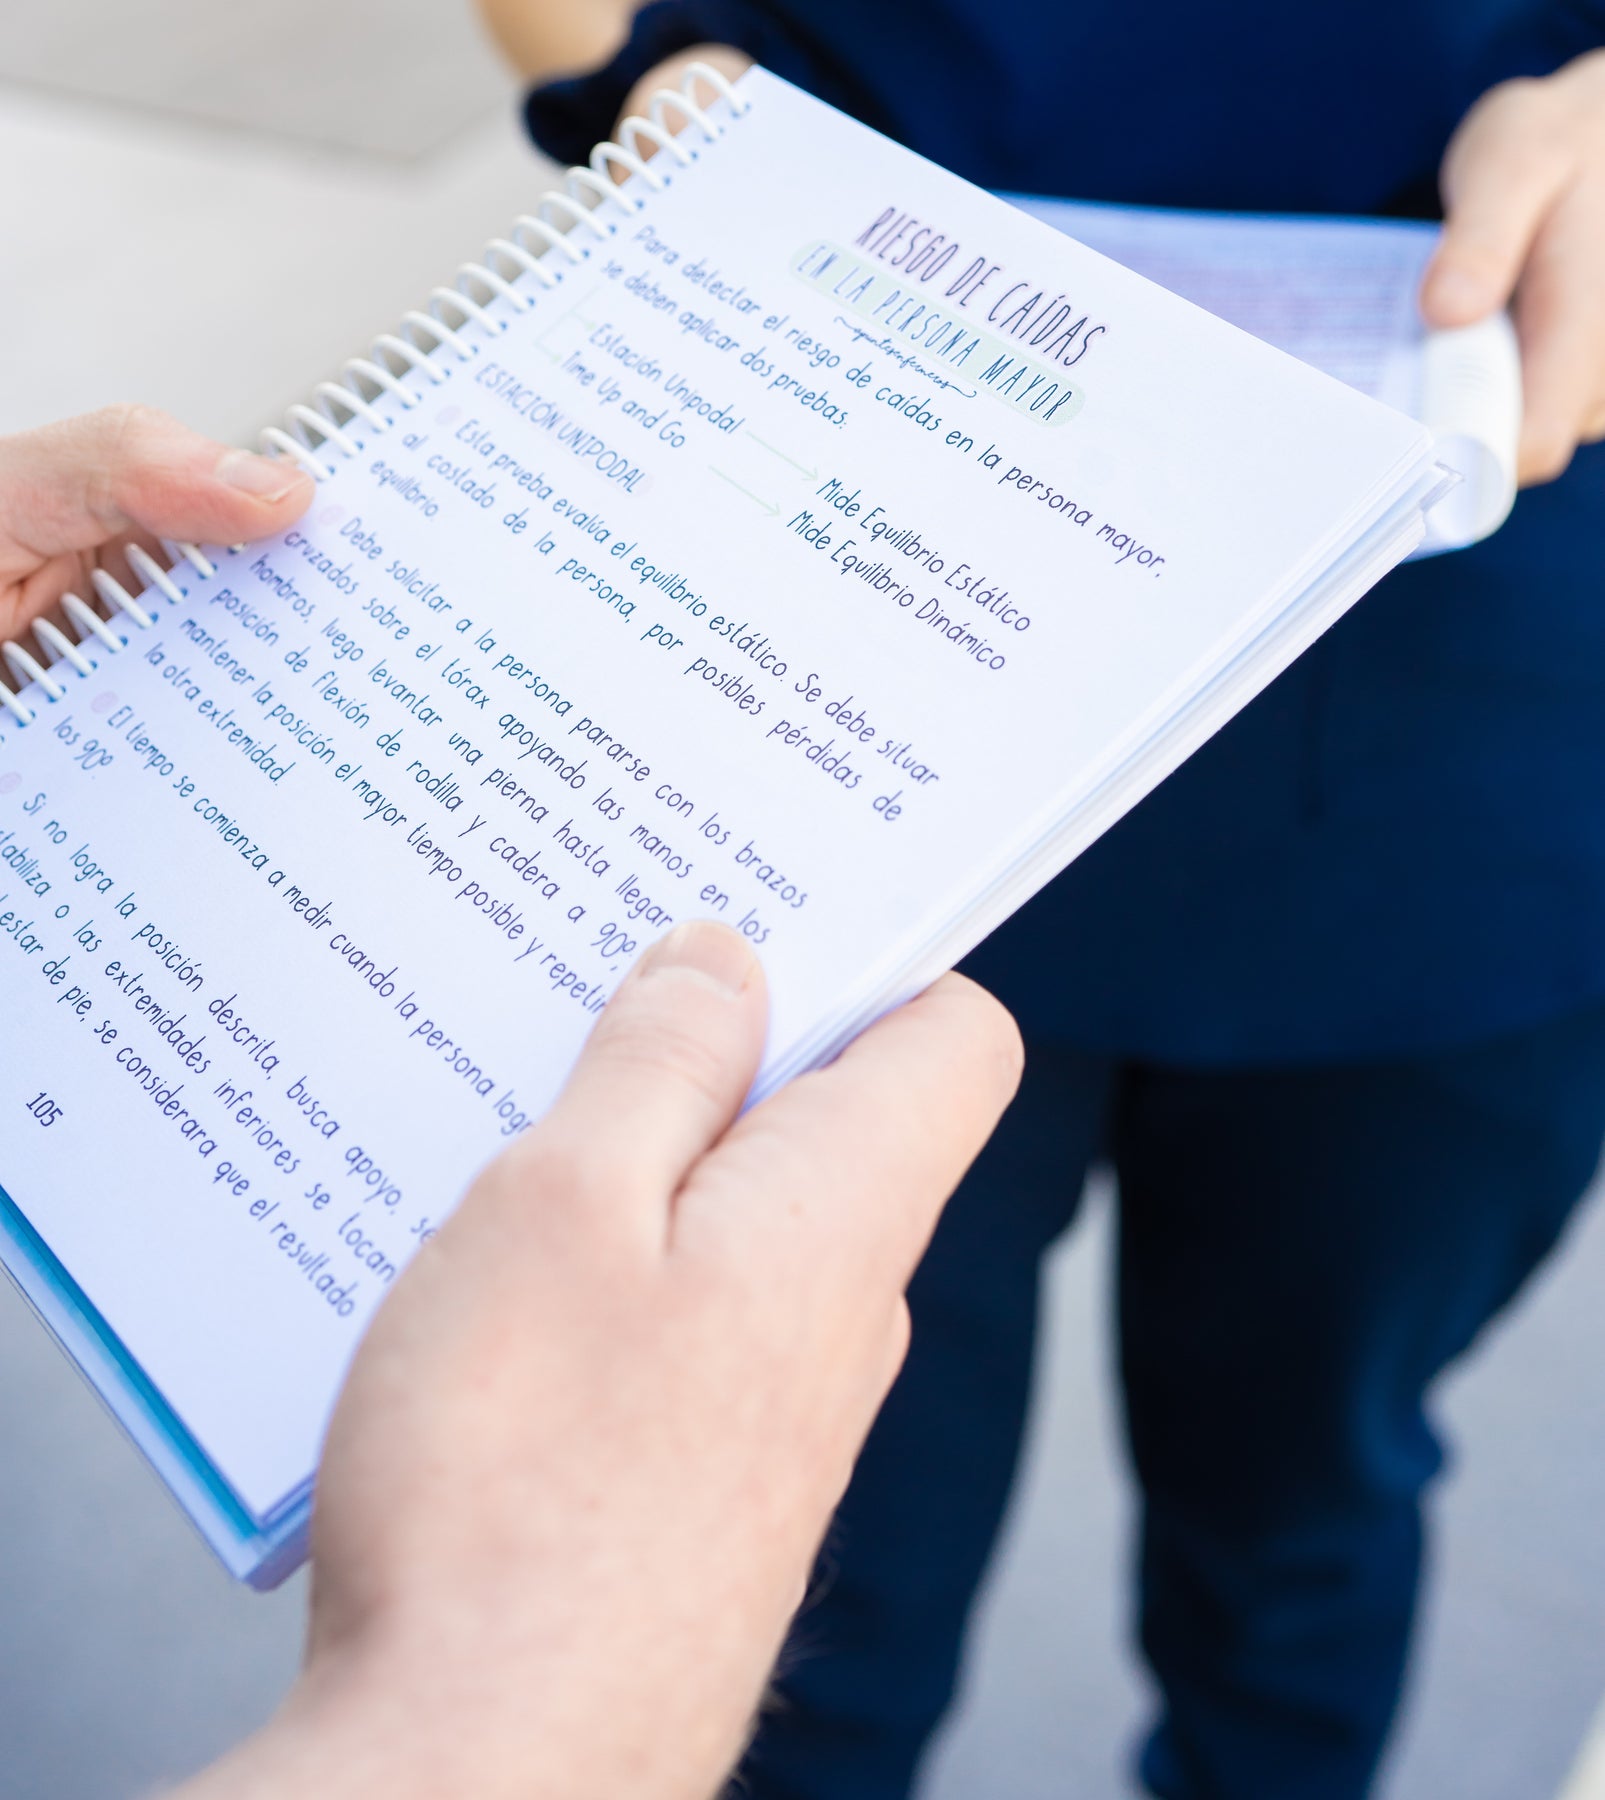 RIESGO DE CAÍDAS
EN LA PERSONA MAYOR
apuntesenfermeros
Para detectar el riesgo de caídas en la persona mayor,
se deben aplicar dos pruebas:
Estación Unipodal Mide Equilibrio Estático
Time Up and Go Mide Equilibrio Dinámico
ESTACIÓN UNIPODAL
Esta prueba evalúa el equilibrio estático. Se debe situar
al costado de la persona, por posibles pérdidas de
equilibrio.
Debe solicitar a la persona pararse con los brazos
cruzados sobre el tórax apoyando las manos en los
hombros, luego levantar una pierna hasta llegar
posición de flexión de rodilla y cadera a 90º,
mantener la posición el mayor tiempo posible y repetir
la otra extremidad.
El tiempo se comienza a medir cuando la persona logr
los 90º.
Si no logra la posición descrita, busca apoyo, se
tabiliza o las extremidades inferiores se tocan
estar de pie, se considerara que el resultado
105